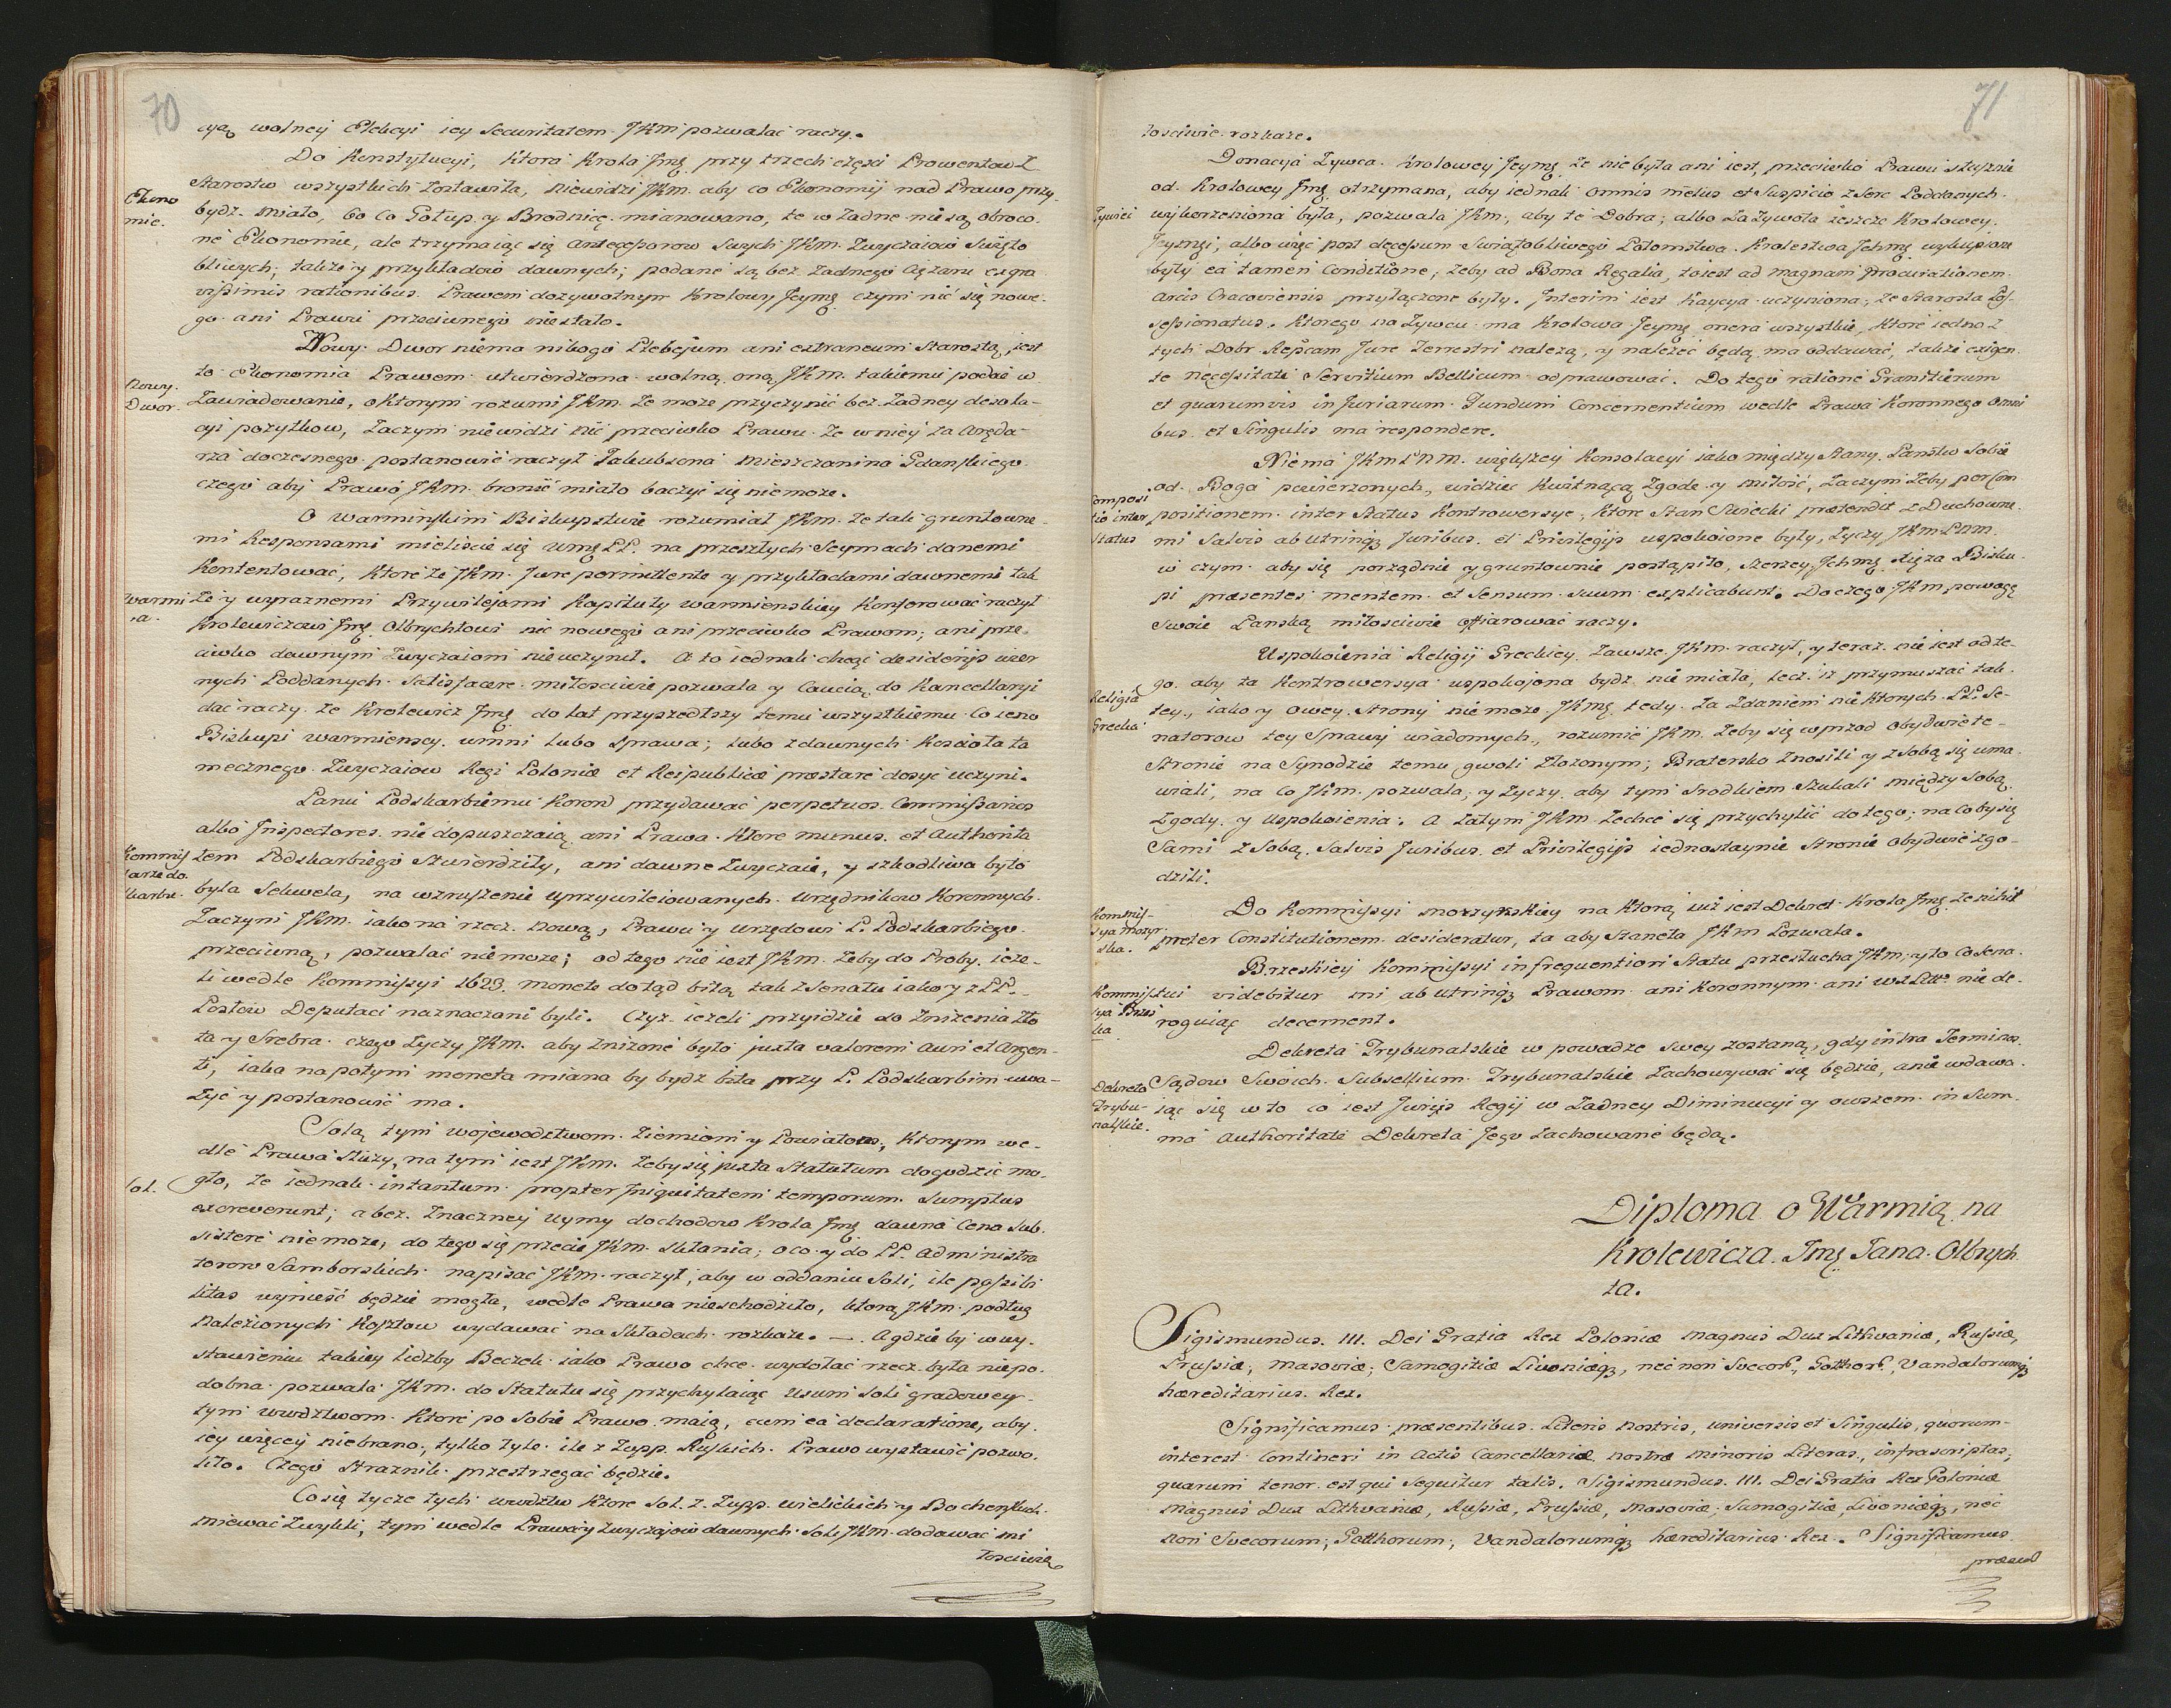 70
cyą wolney Elekcyi iey Securitatem JKm pozwalać raczy.
Do Konstytucyi, Ktora Krola Jmę przy trzech częsci Prowentow z
Starostw wszystkich zostawiła, niewidzi JKm. aby co Ekonomij nad Prawo przy
Ekono
mie.
bydź miało, bo co Gołup y Brodnicę mianowano, te w żadne nie są obroco
ne Ekonomie, ale trzymaiąc się Antecessorow Swych JKm. Zwyczaiow Swięto
bliwych; także y przykładow dawnych; podane są bez żadnego Ciężaru ex gra
vissimis rationibus. Prawem dożywotnym Krolowy Jeymę czym nić się nowe-
go ani Prawu przeciwnego niestało.
Nowy Dwor niema nikogo Plebejum ani extraneum Starostą, iest
to Ekonomia Prawem utwierdzona wolną oną JKm. takiemu podać w
Nowy
Dwor.
Zawiadowanie, o Ktorym rozumi JKm. że może przyczynić bez żadney desola-
cyi pożytkow, Zaczym niewidzi nić przeciwko Prawu że w niey za Aręda-
rza doczesnego postanowić raczył Jakubsona Mieszczanina Gdanskiego
czego aby Prawo JKm. bronić miało baczyć się niemoże.
O Warminskim Biskupstwie rozumiał JKm. że tak gruntowne-
mi Responsami mieliscie się Wmę PP. na przeszłych Seymach danemi
Kontentować, Ktore że JKm. Jure permittente y przykładami dawnemi tak
Warmi
a.
że y wyraznemi Przywilejami Kapituły warmienskiey Konferować raczył
Krolewiczowi Jmę Olbrychtowi nic nowego ani przeciwko Prawom; ani prze-
ciwko dawnym Zwyczaiom nieuczynił. A to iednak chcąc desiderijs wier
nych Poddanych Satisfacere miłosciwie pozwala y Caucią do Kancellaryi
dać raczy że Krolewicz Jmę do lat przyszedłszy temu wszystkiemu co ieno
Biskupi warmienscy winni lubo Sprawa; lubo zdawnych Koscioła ta
mecznego Zwyczaiow Regi Poloniæ et Reipublicæ præstare dosyć uczyni.
Panu Podskarbiemu Koron przydawać perpetuos Commissarios
albo Inspectores nie dopuszczaią ani Prawa Ktore munus et Authorita
Kommis
sarze do
skarbu.
tem Podskarbiego Stwierdziły, ani dawne Zwyczaie, y szkodliwa było
była Sekwela, na wzruszenie uprzywileiowanych Urzędnikow Koronnych.
Zaczym JKm. iako na rzecz nową, Prawu y urzędowi P. Podskarbiego
przeciwną, pozwalać niemoże; od tego nie iest JKm. żeby do Proby, ieże-
li wedle Kommissyi 1623. monete dotąd biłą tak z Senatu iako y z PP.
Posłow Deputaci naznaczani byli. Czyż ieżeli przyidzie do Zniżenia Zło
ta y Srebra czego życzy JKm. aby Zniżone było juxta valorem Auri et Argen-
ti, iaka na potym moneta miana by bydź biła przy P. Podskarbim uwa-
żyć y postanowić ma.
Solą tym wojewodztwom Ziemiom y Powiatom, Ktorym we-
dle Prawa Służy, na tym iest JKm. żeby się juxta Statutum dogodzić mo-
Sol.
gło, że iednak intantum propter Iniquitatem temporum Sumptus
excreverunt; a bez Znaczney Uymy dochodow Krola Jmę dawna Cena Sub-
sistere niemoże, do tego się przecie JKm. skłania; o co y do PP. Administra
torow Samborskich napisać JKm. raczył, aby w oddaniu Soli, ile possibi
litas wynieść będzie mogła, wedle Prawa nieschodziło, ktorą JKm. podług
należionych Kosztow wydawać na Składach rozkaże. — A gdzie by w wy-
stawieniu takiey liczby Beczek iako Prawo chce wydołać rzecz była niepo-
dobna pozwala JKm. do Statutu się przychylaiąc Usum Soli gradowey
tym wwdztwom Ktore po Sobie Prawo maią, cum eâ declaratione, aby
iey więcey niebrano, tylko tyle ile z Zupp Ruskich Prawo wystawić pozwo-
liło. Czego Straznik przestrzegać będzie.
Co się tycze tych wwdztw Ktore Sol z Zupp wielickich y Bochenskich
miewać Zwykli, tym wedle Prawa y Zwyczajow dawnych Soli JKm. dodawać mi
łosciwie
71
łosciwie rozkaże.
Donacyia Zywca Krolowey Jeymę że nie była ani iest, przeciwko Prawu słusznie
od Krolowey Jmę otrzymana, aby iednak omnis metus et Suspicio z Serc Poddanych
Zywiec
wykorzeniona była, pozwala JKm., aby te Dobra; albo Za Zywota ieszcze Krolowey
Jeymęi; albo więc post decessum Swiątobliwego Potomstwa Krolestwa Ichmę wykupione
były ea tamen Conditione, żeby ad Bona Regalia, to iest ad magnam Procurationem
Arcis Cracoviensis przyłączone były. Interim iest Kaucya uczyniona, że Starosta Pos-
sessionatus, Ktorego na Zywcu ma Krolowa Jeymę onera wszystkie, Ktore iedno z
tych Dobr Reipcam Jure Terrestri należą, y należeć będą ma oddawać, także exigen
te necessitate Servitium Bellicum odprawować. Do tego ratione Granitierum
et quarumvis inIuriarum Fundum Concernentium wedle Prawa Koronnego Omni
bus et Singulis ma respondere.
Niema JKm PNm. większey Konsolacyi iako między Stany Panstw Sobie
od Boga powierzonych, widzieć Kwitnącą Zgode y miłość, Zaczym żeby per Com
Composi
tio inter
Status
positionem inter Status Kontrowersye, Ktore Stan Swiecki prætendit z Duchowne
mi Salvis ab Utrinq3 Juribus et Privilegijs uspokoione były, życzy JKm PNm.
w czym aby się porządnie y gruntownie postąpiło, szerzey Ichmę Xięża Bisku-
pi præsentes mentem et Sensum suum explicabunt. Do czego JKm powagę
Swoie Panską miłosciwie offiarować raczy.
Uspokoienia Religij Greckiey Zawsze JKm. raczył, y teraz nie iest od te-
go aby ta Kontrowersya uspokojona bydź nie miała, lecz iż przymuszać tak
Religia
Grecka
tey, iako y owey Strony niemoże JKmę tedy Za Zdaniem niektorych PP. Se-
natorow tey Sprawy wiadomych, rozumie JKm. żeby się wprzod obydwie te-
Stronie na Synodzie temu gwoli Złożonym; Bratersko Znosili y z Sobą się uma
wiali, na co JKm. pozwala, y życzy aby tym srodkiem Szukali między Sobą
Zgody y Uspokoienia: A Zatym JKm. Zechce się przychylić do tego; na co by się
Sami z Sobą Salvis Juribus et Privilegijs iednostaynie Stronie obydwie Zgo-
dzili.
Do Kommissyi mozyrskiey na Ktorą iuż iest Dekret Krola Jmę że nihil
Kommis-
sya mozyr-
ska.
præter Constitutionem desideratur, ta aby Staneła JKm Pozwala.
Brzeskiey Kommissyi in frequentiori Statu przesłucha JKm. y to Co Sena-
Kommis
sya Brzes
ka
tui videbitur ni ab Utrinq3 Prawom ani Koronnym ani wXLtt nie de-
roguiąc decernent.
Dekreta Trybunalskie w powadze swey zostaną, gdy intra Terminos
Dekreta
Trybu-
nalskie.
Sądow Swoich Subsellium Trybunalskie Zachowywać się będzie, a nie wdawa
iąc się w to co iest Jurijs Regij w żadney Diminucyi y owszem in Sum
ma authoritate Dekreta Jego zachowane będą.
Diploma o Warmią na
Krolewicza Jmę Jana Olbrych
ta.
Sigismundus III. Dei Gratia Rex Poloniæ Magnus Dux Lithvaniæ, Russiæ,
Prussiæ, Masoviæ, Samogitiæ Livoniæq3, nec non Svecor., Gotthor., Vandalorumq3
hæreditarius Rex.
Significamus præsentibus Literis nostris, universis et Singulis, quorum-
interest Contineri in Actis Cancellariæ nostræ minoris Literas, infrascriptas,
quarum tenor est qui Sequitur talis. Sigismundus III. Dei Gratia Rex Poloniæ
Magnus Dux Lithvaniæ, Russiæ, Prussiæ, Masoviæ, Samogitiæ, Livoniæq3, nec
non Svecorum, Gotthorum, Vandalorumq3 hæreditarius Rex. Significamus
præsen